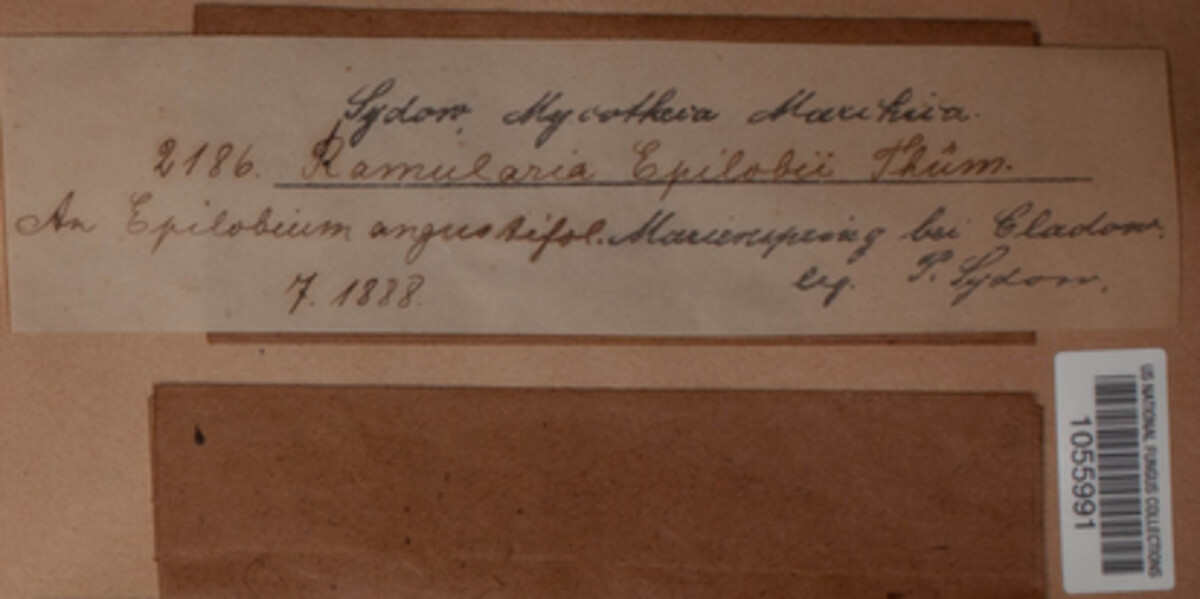 Sydow, Mycotheca Marchica.
2186. Ramularia Epilobii Thüm.
An Epilobium angustifol. Marienspring bei Cladow.
7. 1888.
leg. P. Sydow.
US NATIONAL FUNGUS COLLECTIONS
1055991